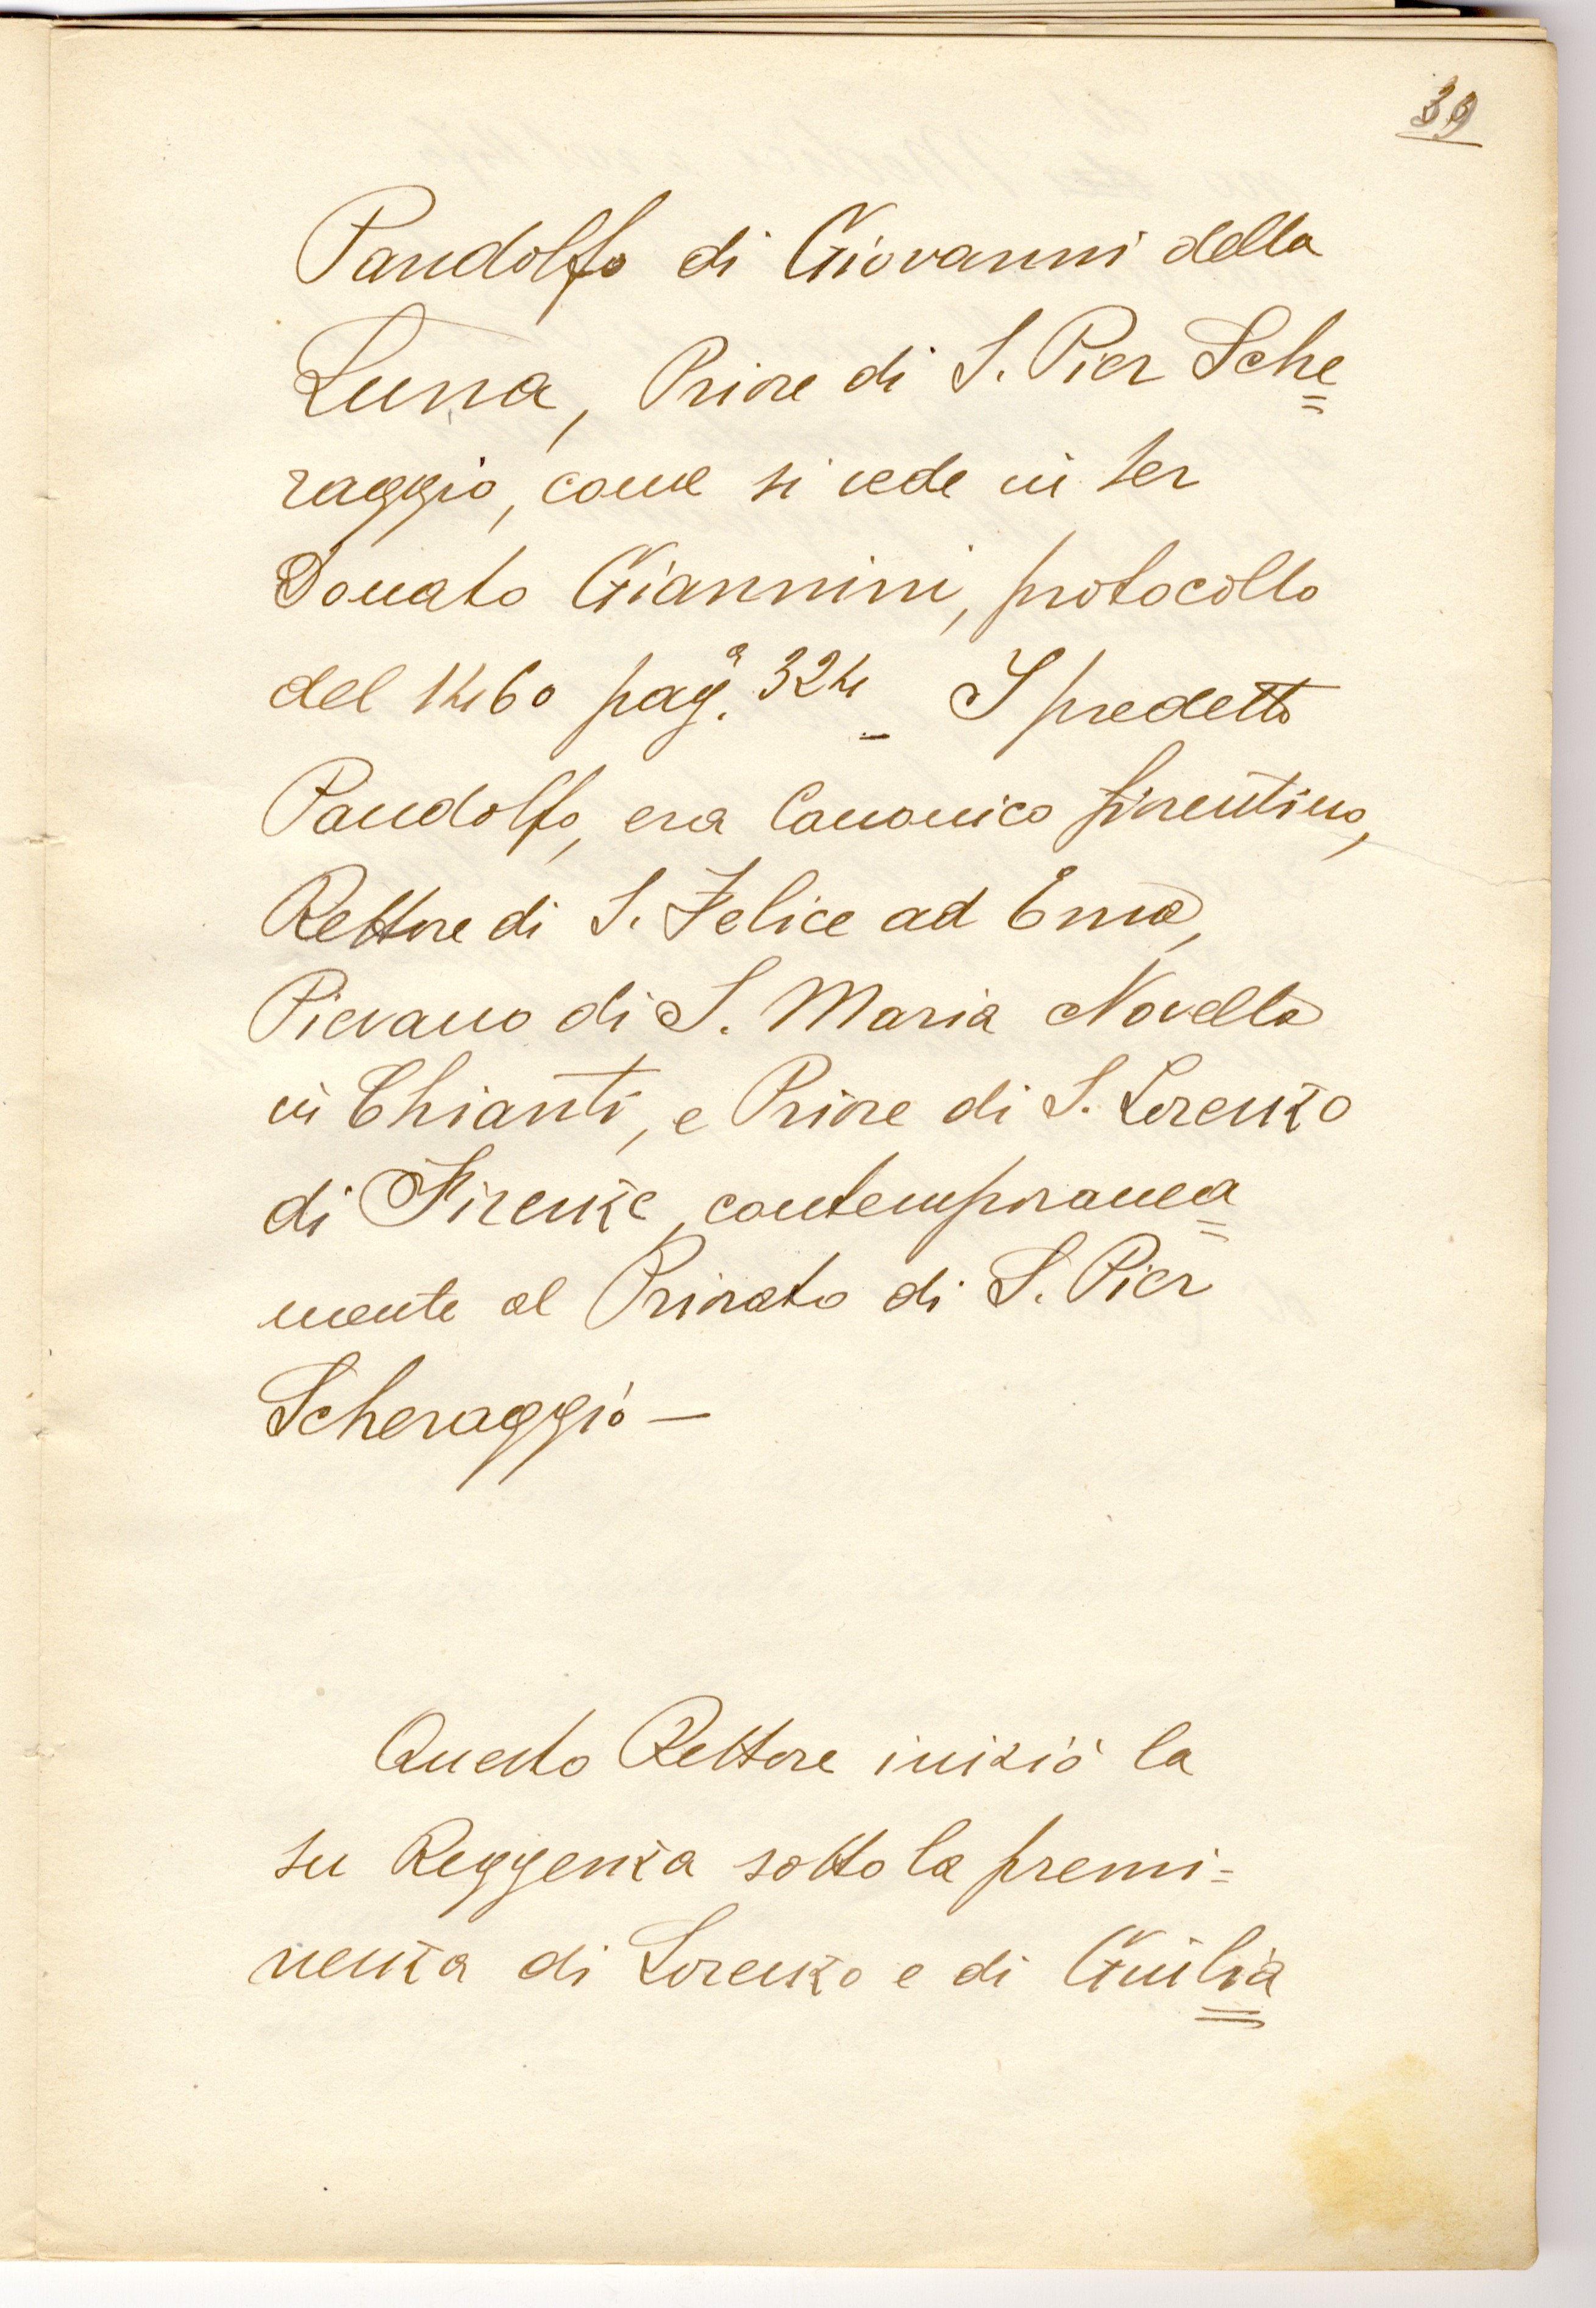 39
Pandolfo di Giovanni della
Luna, Priore di S. Pier Sche=
raggio, come si vede in ser
Donato Giannini, protocollo
del 1460 pagª. 324_ I predetto
Pandolfo, era Canonico fiorentino,
Rettore di S. Felice ad Ema,
Pievano di S. Maria Novella
in Chianti, e Priore di S. Lorenzo
di Firenze, contemporanea=
mente al Priorato di S. Pier
Scheraggio —
Questo Rettore iniziò la
su Reggenza sotto la premi=
nenza di Lorenzo e di Guilia=